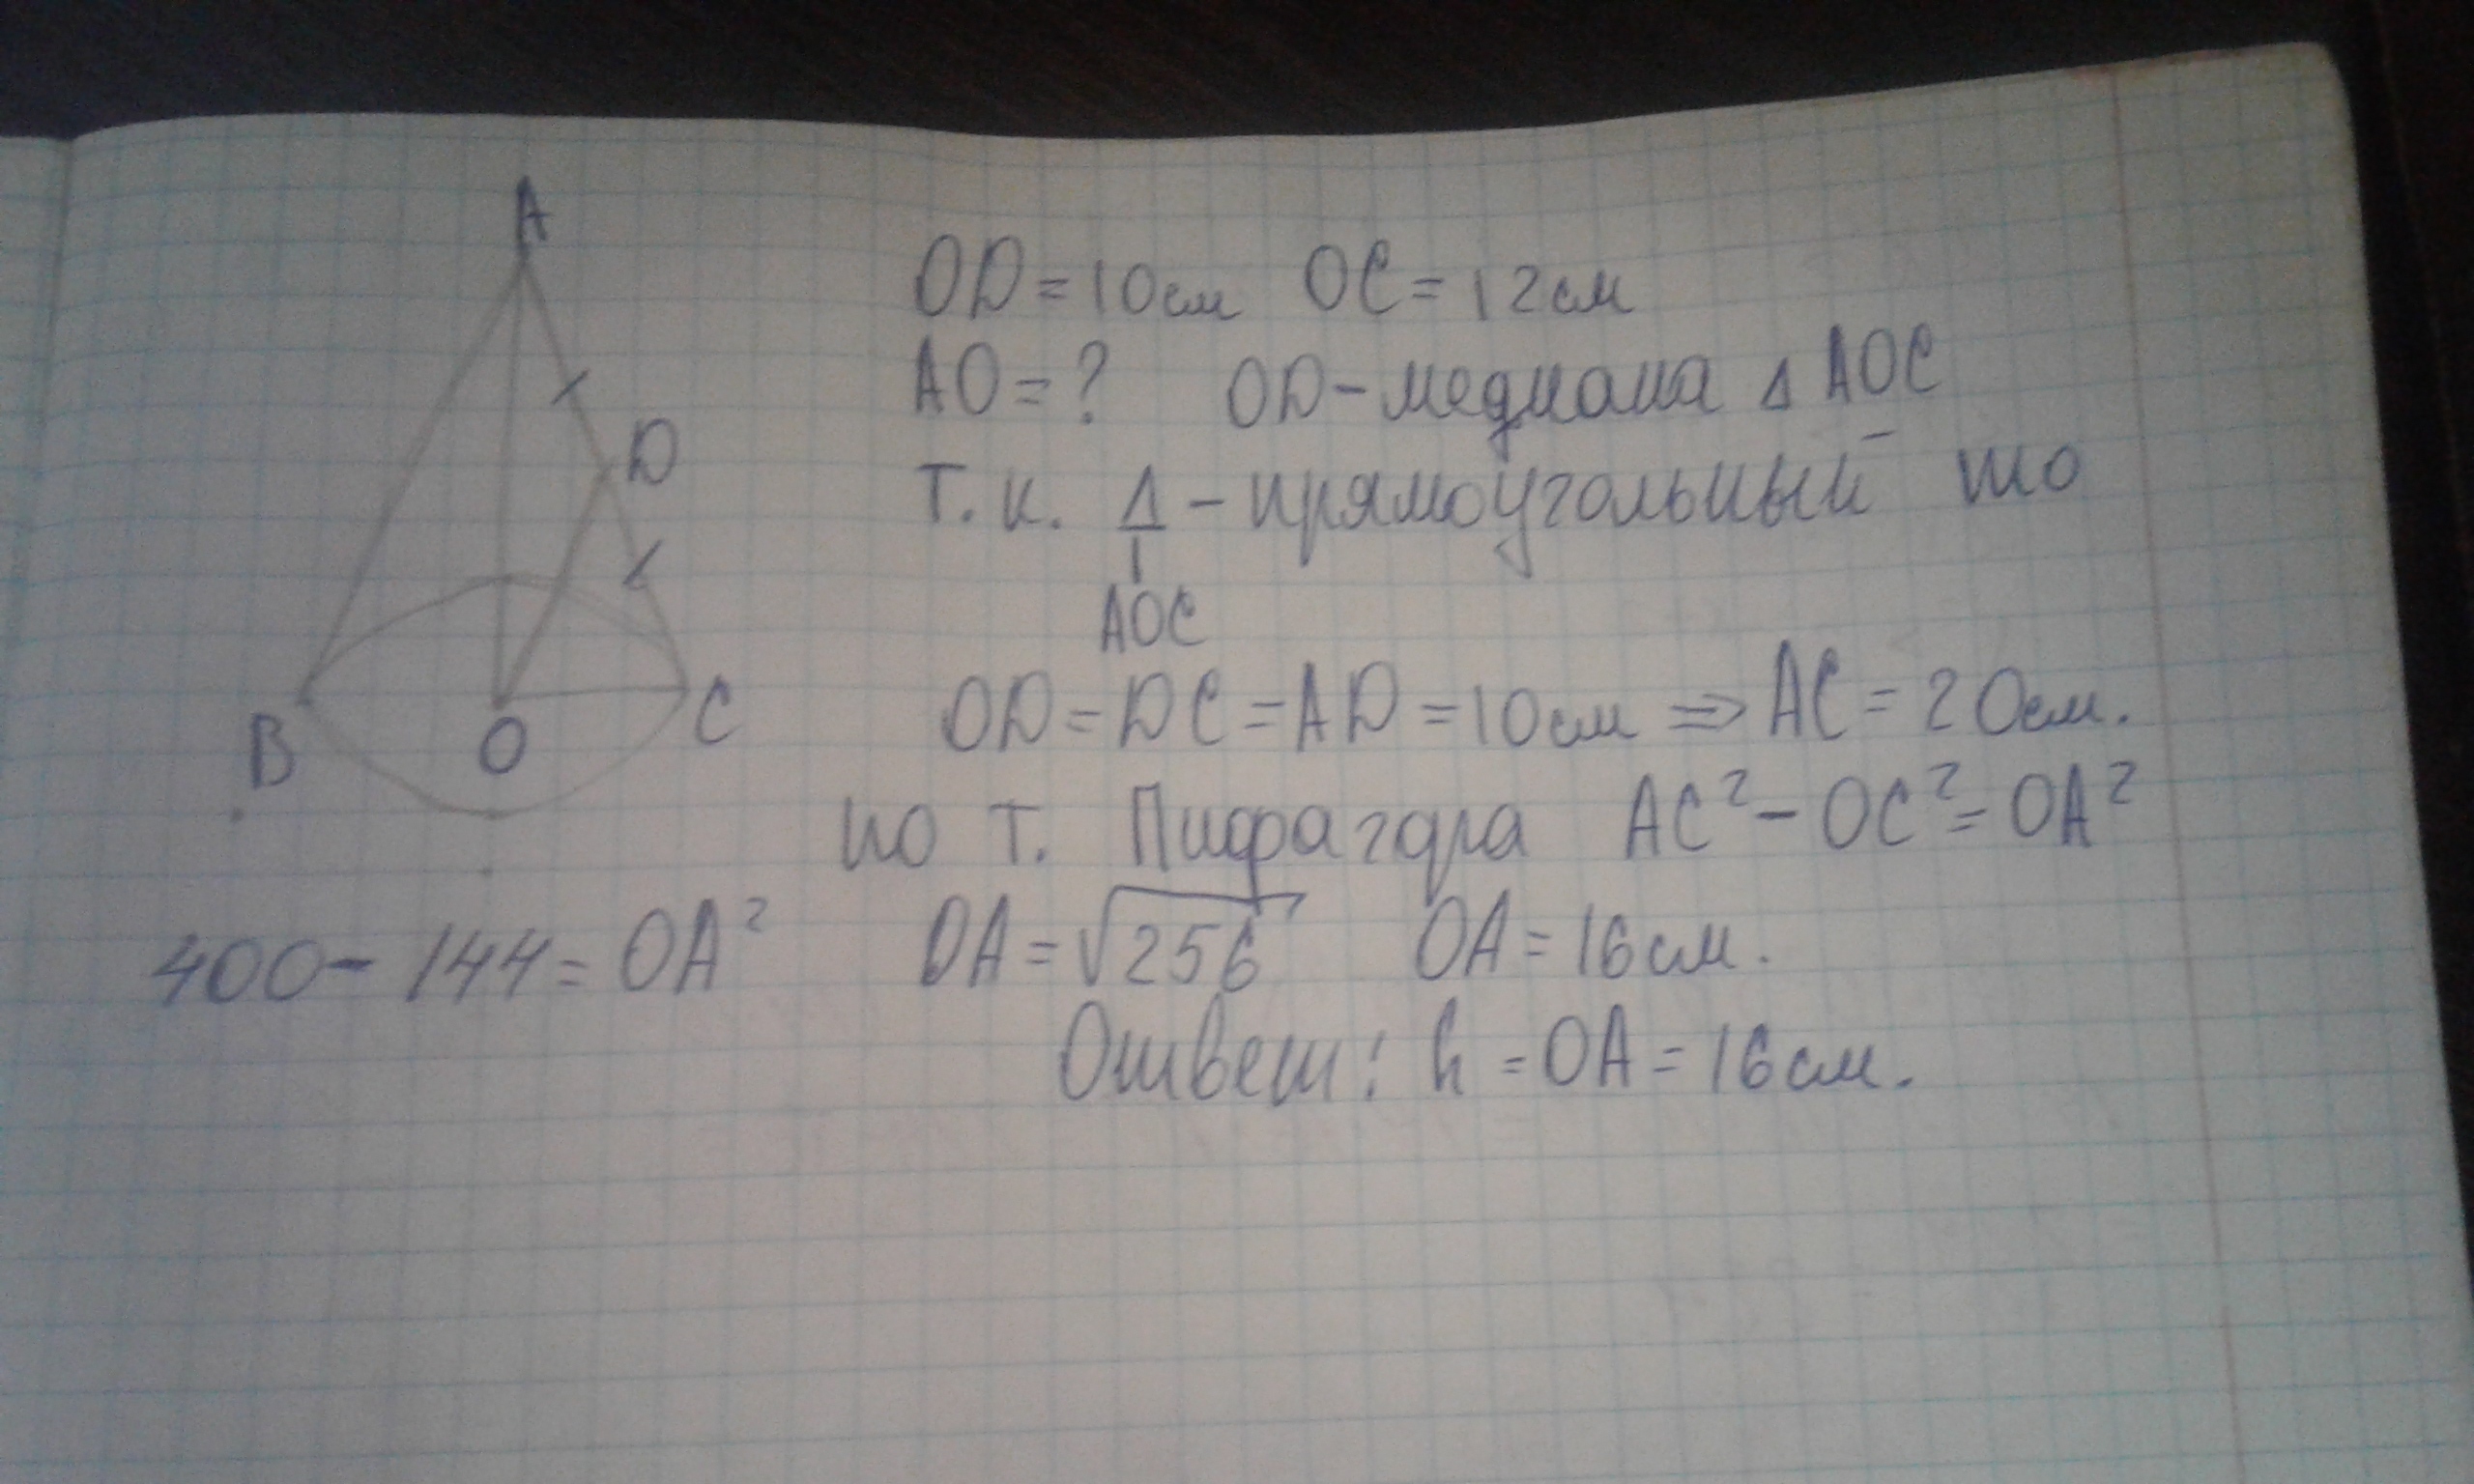 A
OD = 10см OC = 12см
AO = ? OD - медиана Δ AOC
D
т.к. Δ - прямоугольный то
AOC
B O C
OD = DC = AD = 10см ⇒ AC = 20см.
по т. Пифагора AC² - OC² = OA²
400 - 144 = OA² OA = √256 OA = 16см.
Ответ: h = OA = 16см.